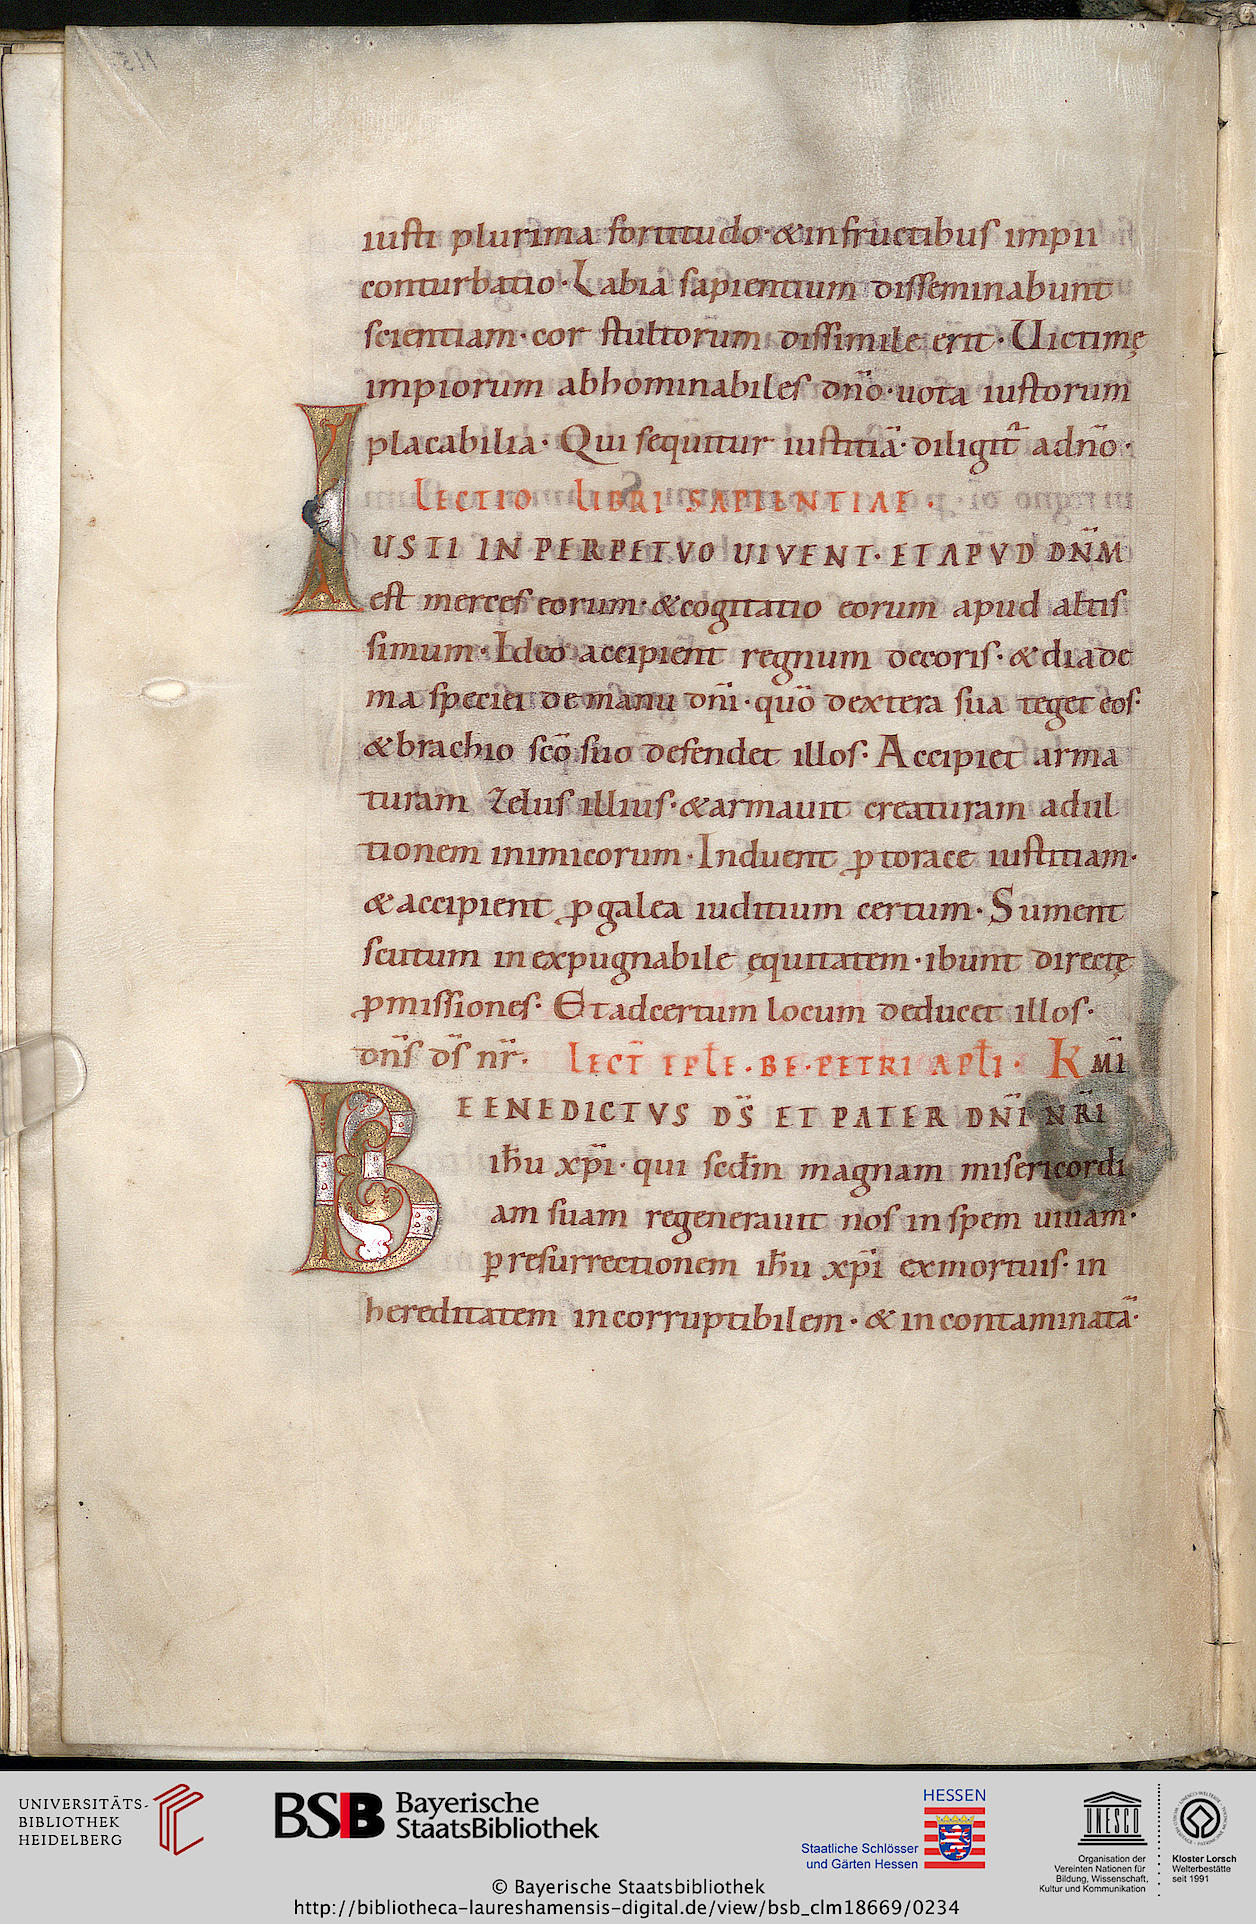 iusti plurima fortitudo· &infructibus impii
conturbatio· Labia sapientium disseminabunt
scientiam· cor stultorum dissimile erit· Uictimę
impiorum abhominabiles dño· uota iustorum
placabilia· Qui sequitur iustitiā· diligit᷑ adño·
LECTIO LIBRI SAPIENTIAE·
IUSTI IN PERPETVO UIVENT· ET APVD DÑM
est merces eorum· &cogitatio eorum apud altis
simum· Ideo accipient regnum decoris· &diade
ma speciei de manu dñi· quō dextera sua teget eos·
&brachio scō suo defendet illos· Accipiet arma
turam zelus illius· &armauit creaturam adul
tionem inimicorum· Induent ꝓ torace iustitiam·
&accipient ꝓ galea iuditium certum· Sument
scutum inexpugnabile ęquitatem· ibunt directę
ꝓmissiones· Et adcertum locum deducet illos·
dñs dš nr̄· LECT̄ EPŁE· BE· PETRI APŁI· K MĪ
BEENEDICTVS DS̄ ET PATER DÑI NR̄I
ihū xp̄i· qui secđm magnam misericordi
am suam regenerauit nos in spem uiuam·
ꝑ resurrectionem ihū xp̄i exmortuis· in
hereditatem incorruptibilem· &incontaminatā·
UNIVERSITÄTS-
BIBLIOTHEK
HEIDELBERG
BSB Bayerische
StaatsBibliothek
HESSEN
Staatliche Schlösser
und Gärten Hessen
UNESCO
Organisation der
Vereinten Nationen für
Bildung, Wissenschaft,
Kultur und Kommunikation
Kloster Lorsch
Welterbestätte
seit 1991
© Bayerische Staatsbibliothek
http://bibliotheca-laureshamensis-digital.de/view/bsb_clm18669/0234